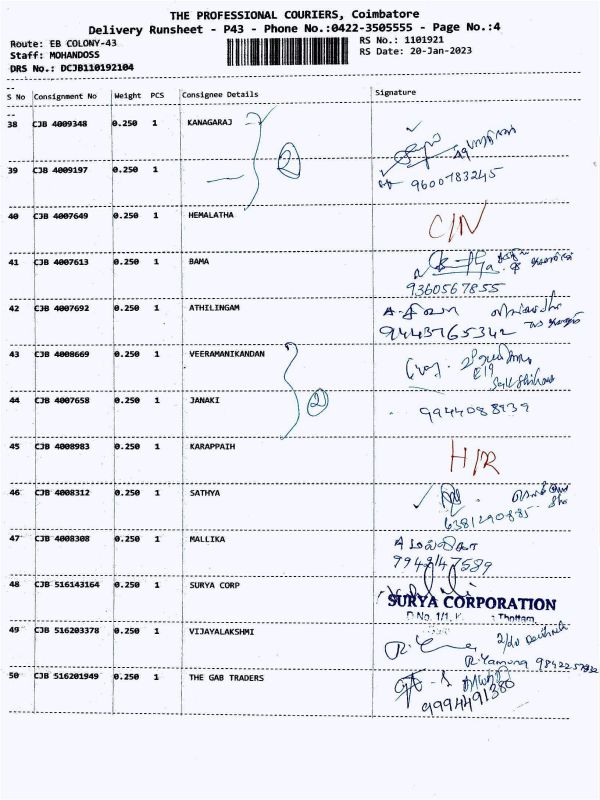 THE PROFESSIONAL COURIERS, Coimbatore
Delivery Runsheet - P43 - Phone No.:0422-3505555 - Page No.:4
Route: EB COLONY-43 RS No.: 1101921
Staff: MOHANDOSS RS Date: 20-Jan-2023
DRS No.: DCJB110192104
S No Consignment No Weight PCS Consignee Details Signature
38 CJB 4009348 0.250 1 KANAGARAJ
2
39 CJB 4009197 0.250 1 9600783245
40 CJB 4007649 0.250 1 HEMALATHA C/N
41 CJB 4007613 0.250 1 BAMA
9360567855
42 CJB 4007692 0.250 1 ATHILINGAM
9443765342
43 CJB 4008669 0.250 1 VEERAMANIKANDAN
E19
44 CJB 4007658 0.250 1 JANAKI 2 9944088939
45 CJB 4008983 0.250 1 KARAPPAIH H/R
46 CJB 4008312 0.250 1 SATHYA
6381290885
47 CJB 4008308 0.250 1 MALLIKA
48 CJB 516143164 0.250 1 SURYA CORP SURYA CORPORATION
D.No. 1/1, Thottam,
49 CJB 516203378 0.250 1 VIJAYALAKSHMI
R.Yamuna
50 CJB 516201949 0.250 1 THE GAB TRADERS
9994491380